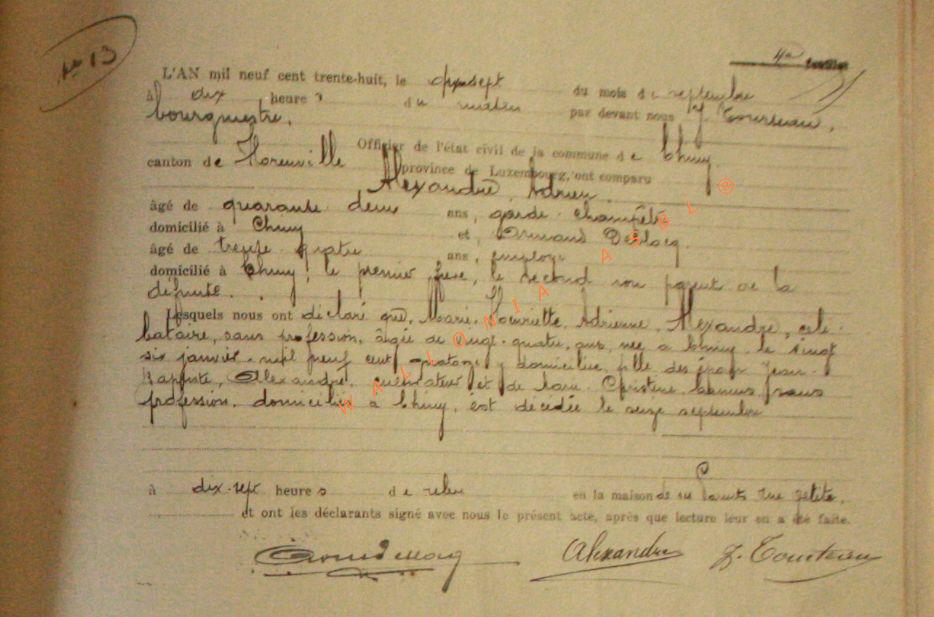 No 13
L'AN mil neuf cent trente-huit, le dix sept du mois de septembre
à dix heures du matin par devant nous J Tourteau,
bourgmestre,
Officier de l'état civil de la commune de Chiny
canton de Florenville province de Luxembourg, ont comparu
Alexandre Adrien
âgé de quarante deux ans, garde champêtre
domicilié à Chiny et Armand
âgé de trente quatre ans, employé
domicilié à Chiny, le premier frère, le second non parent de la
défunte.
lesquels nous ont déclaré que, Marie Henriette Adrienne Alexandre, céli-
bataire, sans profession, âgée de vingt-quatre ans, née à Chiny le vingt
six janvier mil neuf cent quatorze y domiciliée, fille des époux Jean-
Baptiste, Alexandre, cultivateur et de Marie Christine sans
profession domiciliés à Chiny, est décédée le seize septembre
à dix-sept heures de relevée en la maison de ses Parents rue petite.
et ont les déclarants signé avec nous le présent acte, après que lecture leur en a été faite.
Alexandre J. Tourteau
WALLONIA ASBL ©